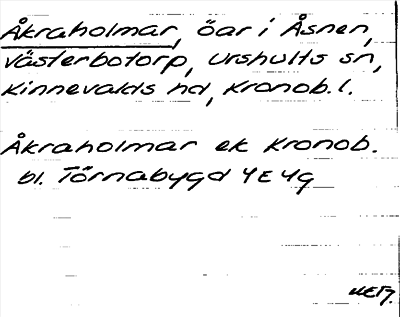 Åkraholmar, öar i Åsnen,
Västerbotorp, Urshults sn,
Kinnevalds hd, Kronob. l.
Åkraholmar ek Kronob.
bl. Törnabygd 4E 4g